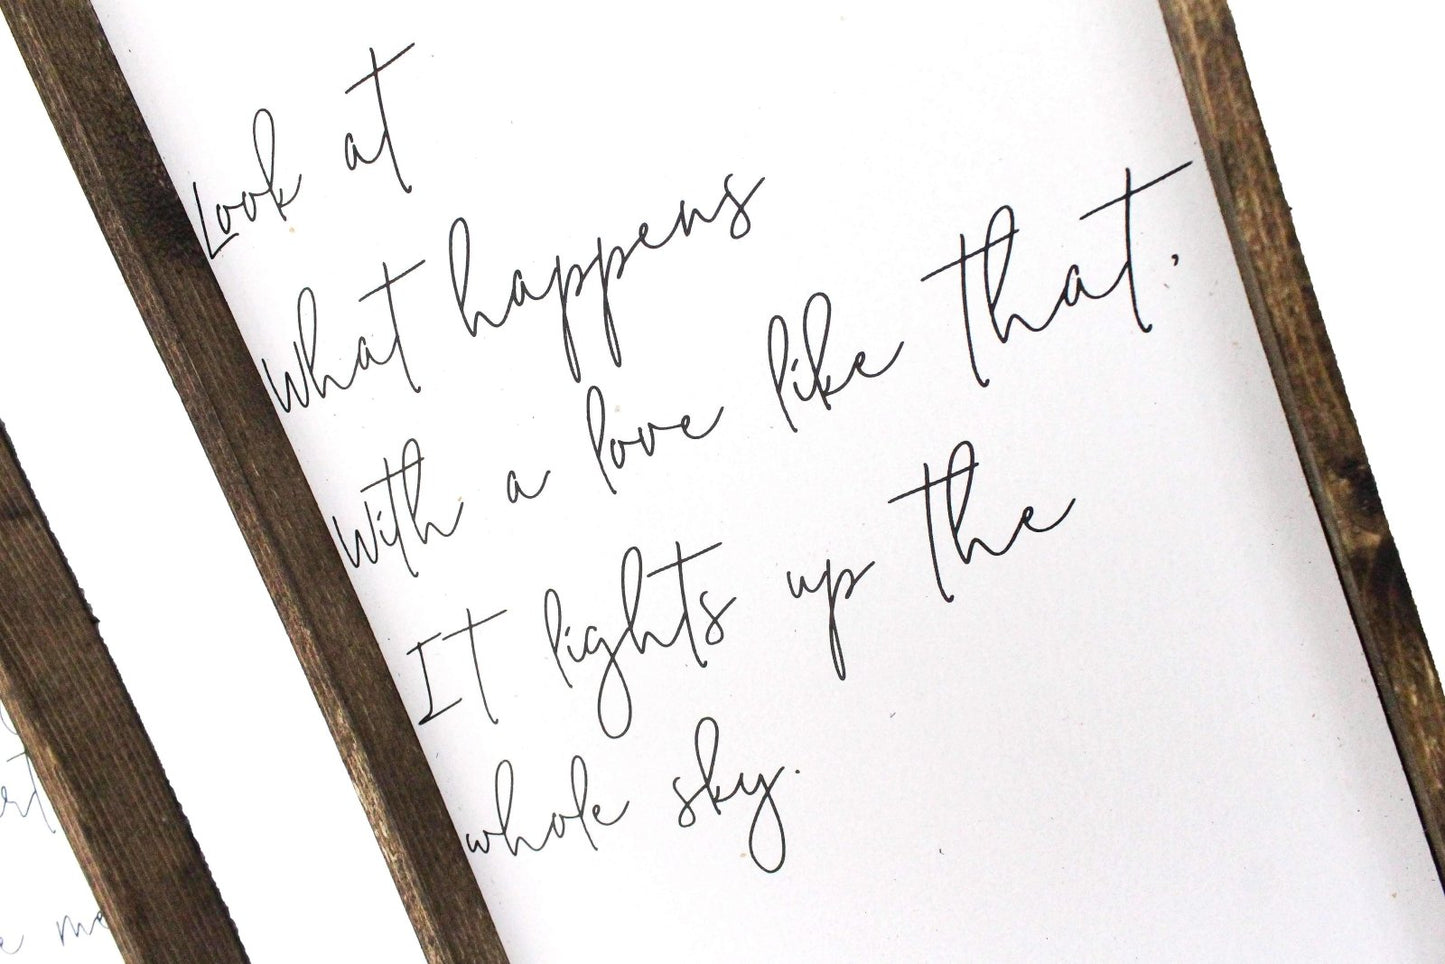 Look at
What happens
With a love like that,
It lights up the
whole sky.
me